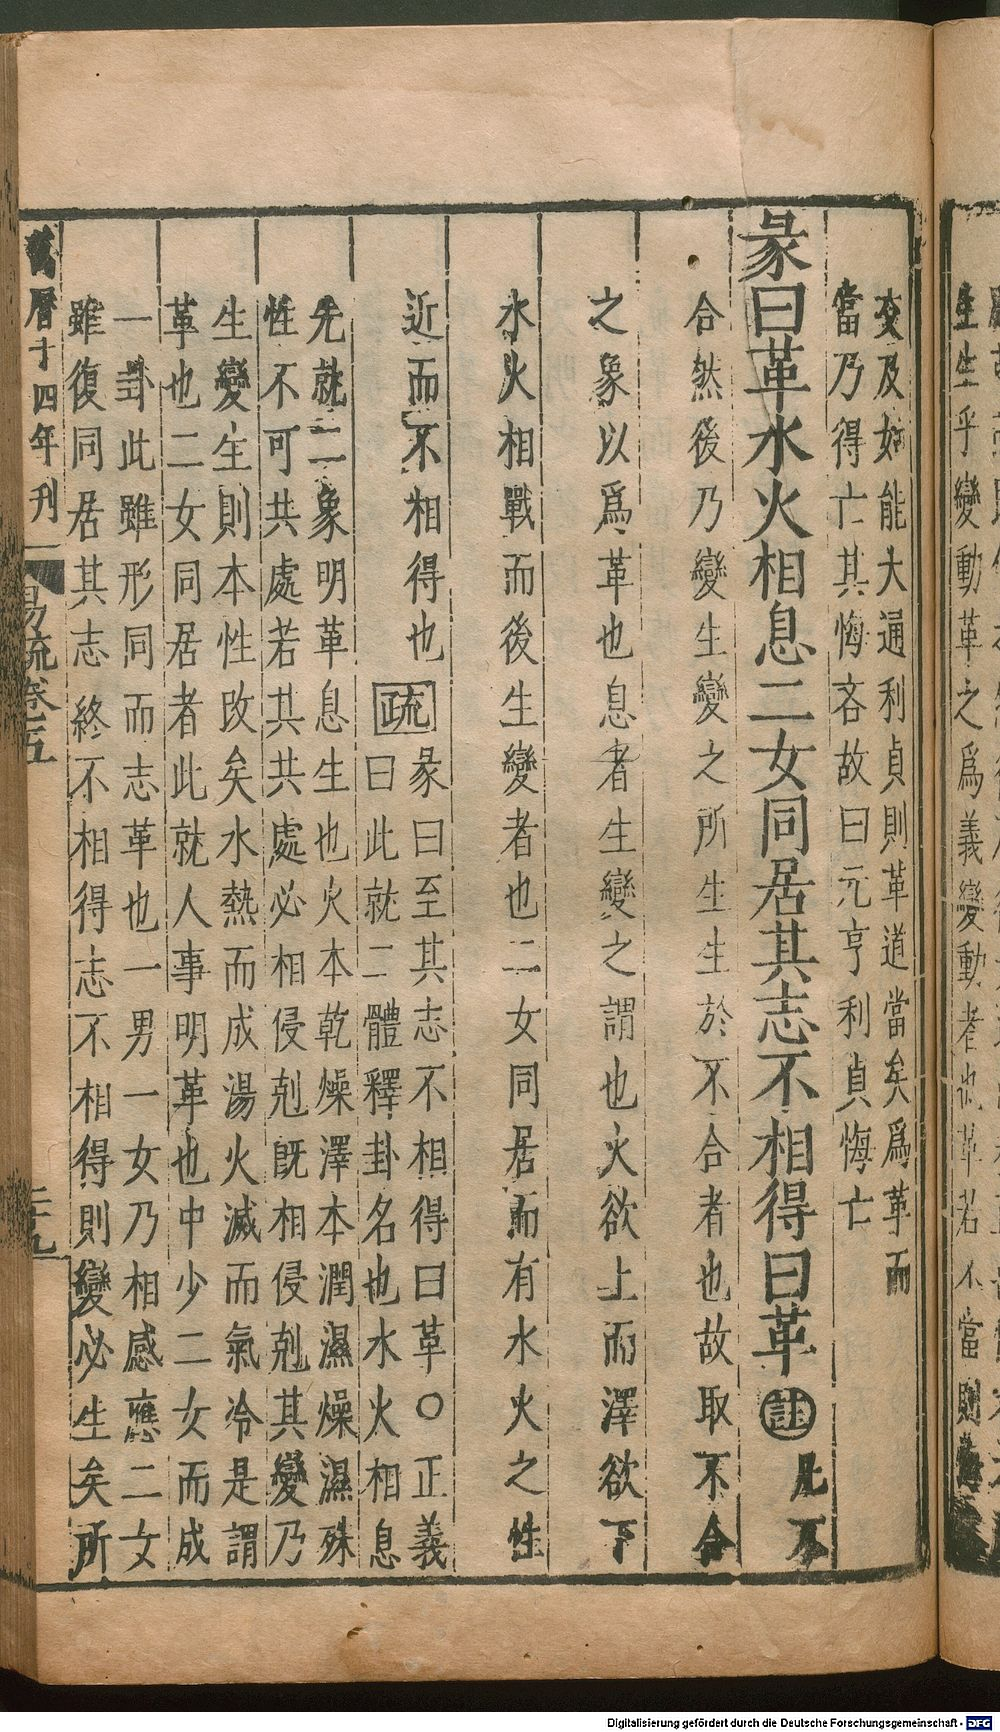 交及如能大通利貞則革道當矣爲革而
當乃得亡其悔吝故曰元亨利貞悔亡
彖曰革水火相息二女同居其志不相得曰革註此不
合然後乃變生變之所生生於不合者也故取不合
之象以爲革也息者生變之謂也火欲上而澤欲下
水火相戰而後生變者也二女同居而有水火之性
近而不相得也疏彖曰至其志不相得曰革○正義
曰此就二體釋卦名也水火相息
先就二象明革息生也火本乾燥澤本潤濕燥濕殊
性不可共處若其共處必相侵剋既相侵剋其變乃
生變生則本性改矣水熱而成湯火滅而氣冷是謂
革也二女同居者此就人事明革也中少二女而成
一卦此雖形同而志革也一男一女乃相感應二女
雖復同居其志終不相得志不相得則變必生矣所
萬曆十四年刊
易疏卷五
三十九
生生乎變動革之爲義變動者也革若不當則
Digitalisierung gefördert durch die Deutsche Forschungsgemeinschaft - DFG